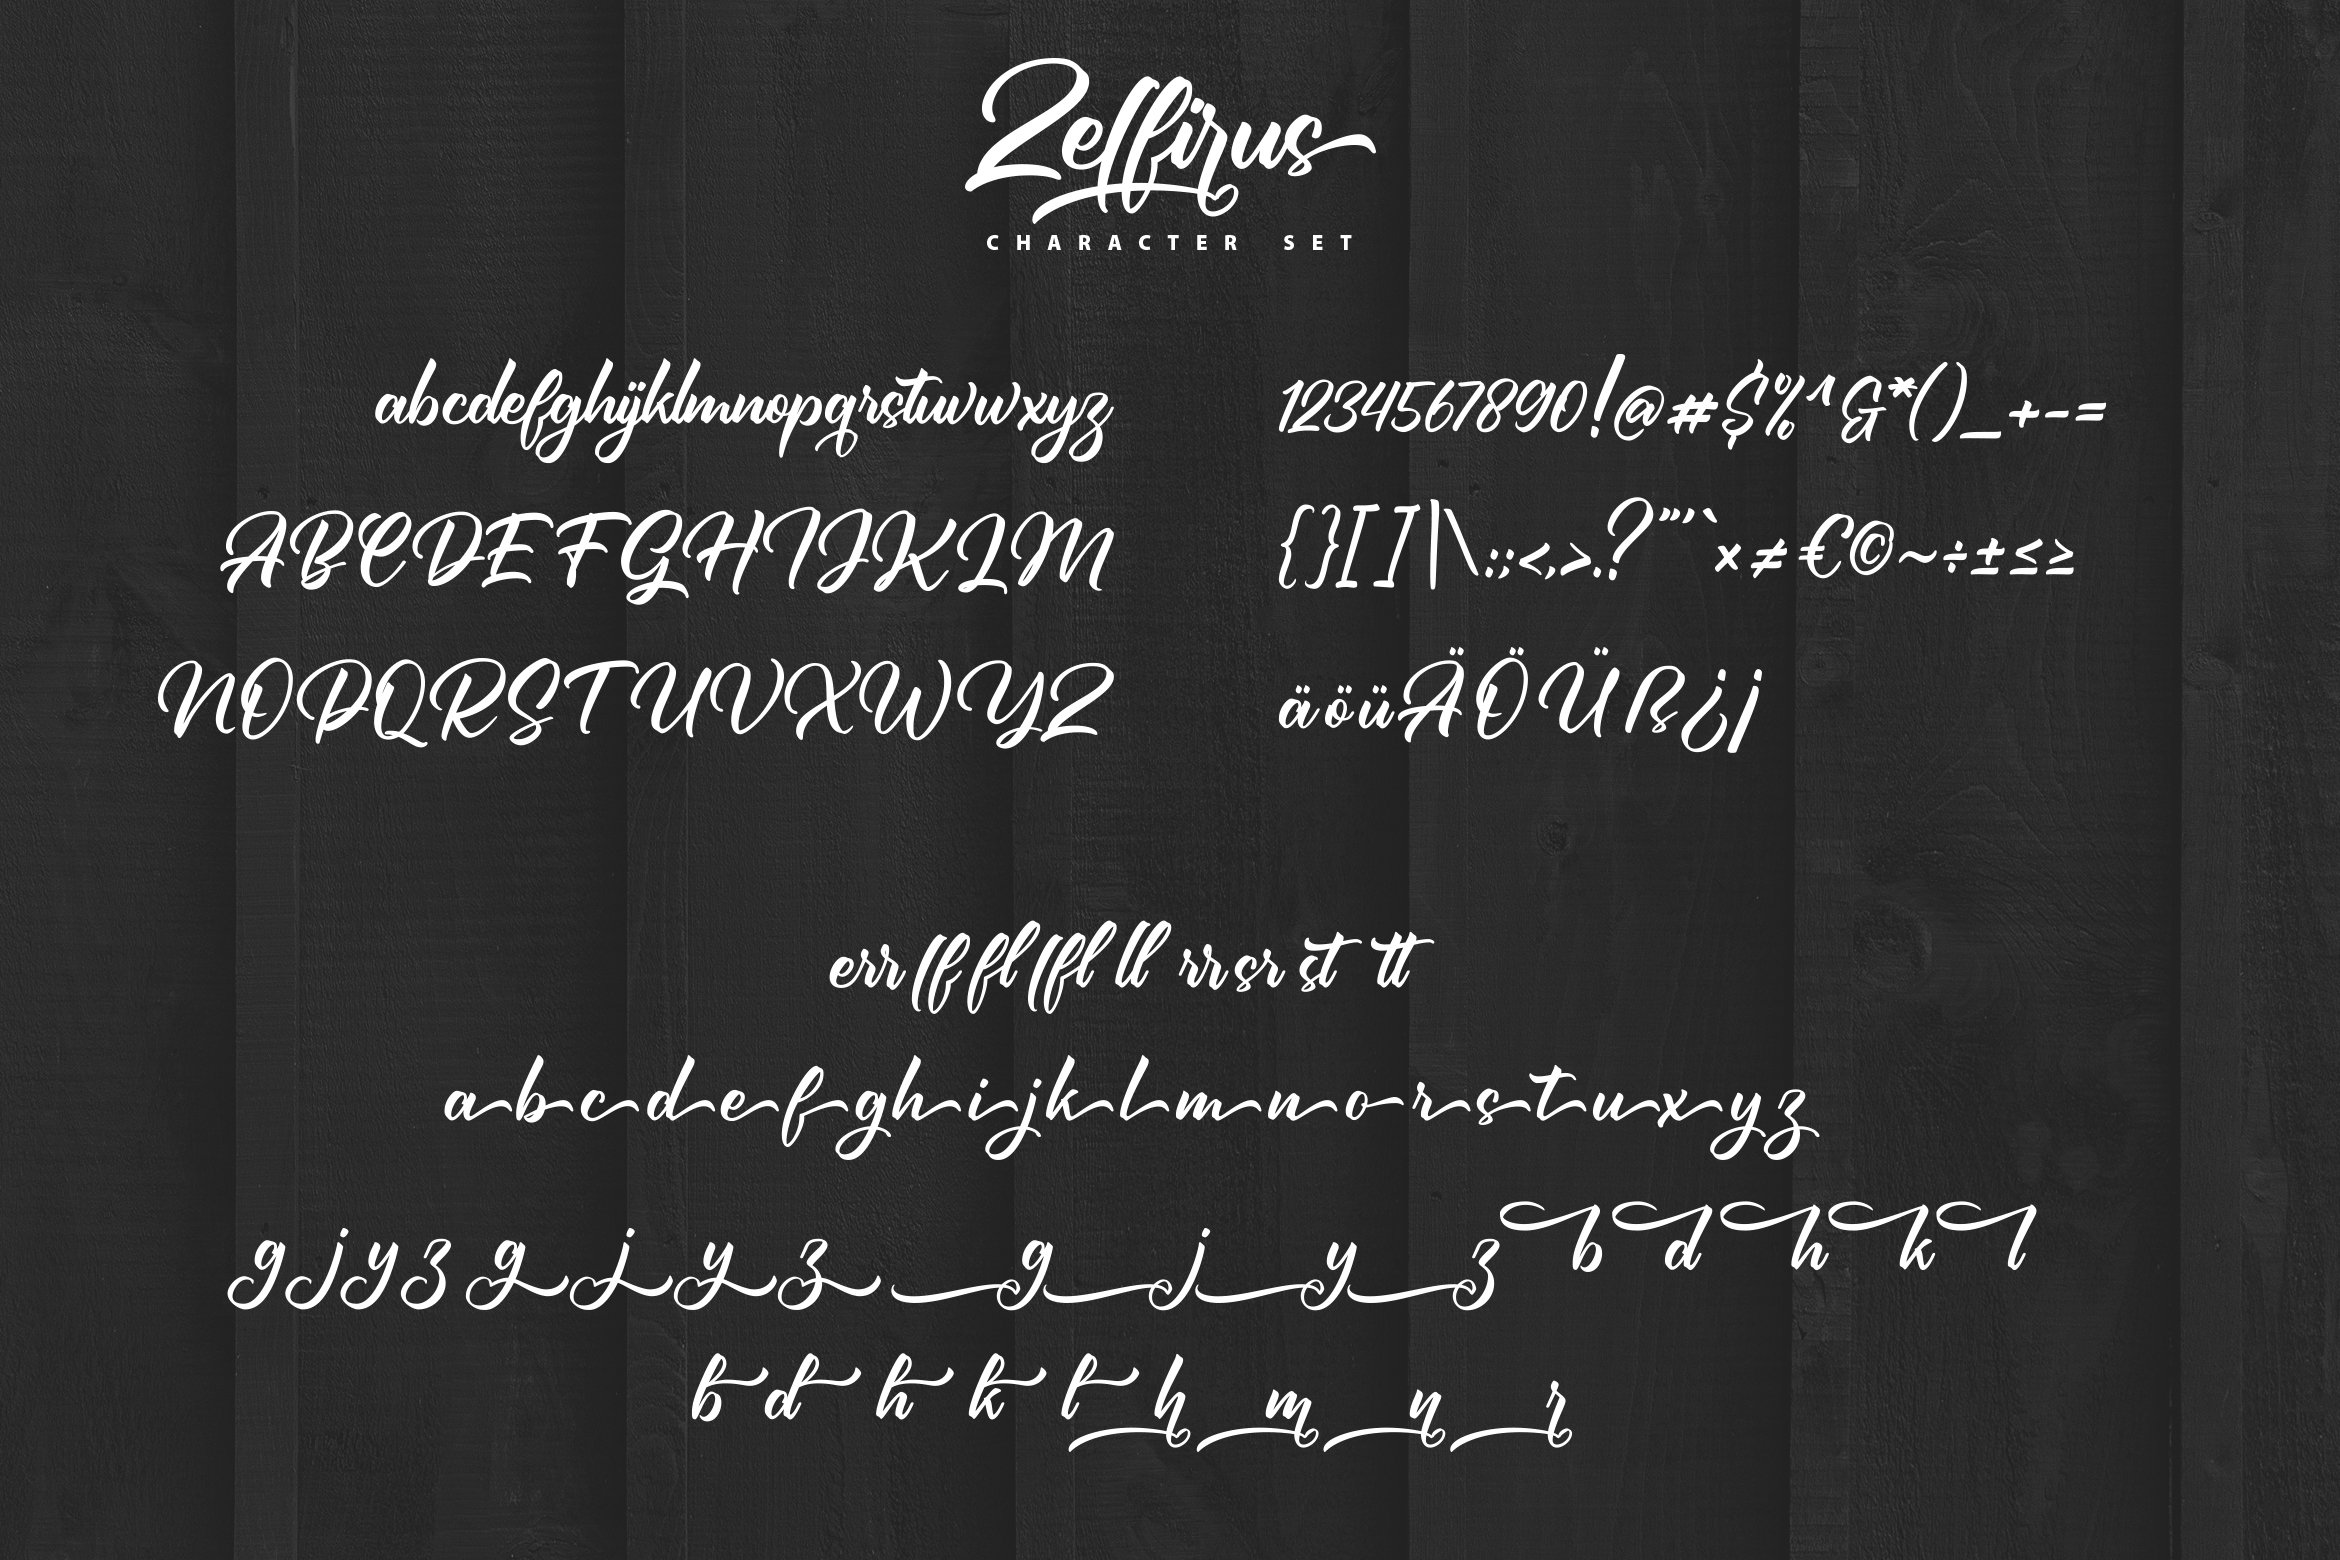 Zelfirus
CHARACTER SET
abcdefghijklmnopqrstuvwxyz
ABCDEFGHIJKLM
NOPQRSTUVXWYZ
1234567890!@#$%^&*()_+-=
{}[]|\:;<,>.?"'`×≠€©~÷±≤≥
äöüÄÖÜß¿¡
err ff fl ffl ll rr sr st tt
a b c d e f g h i j k l m n o r s t u x y z
g j y z g j y z g j y z b d h k l
b d h k l h m n r